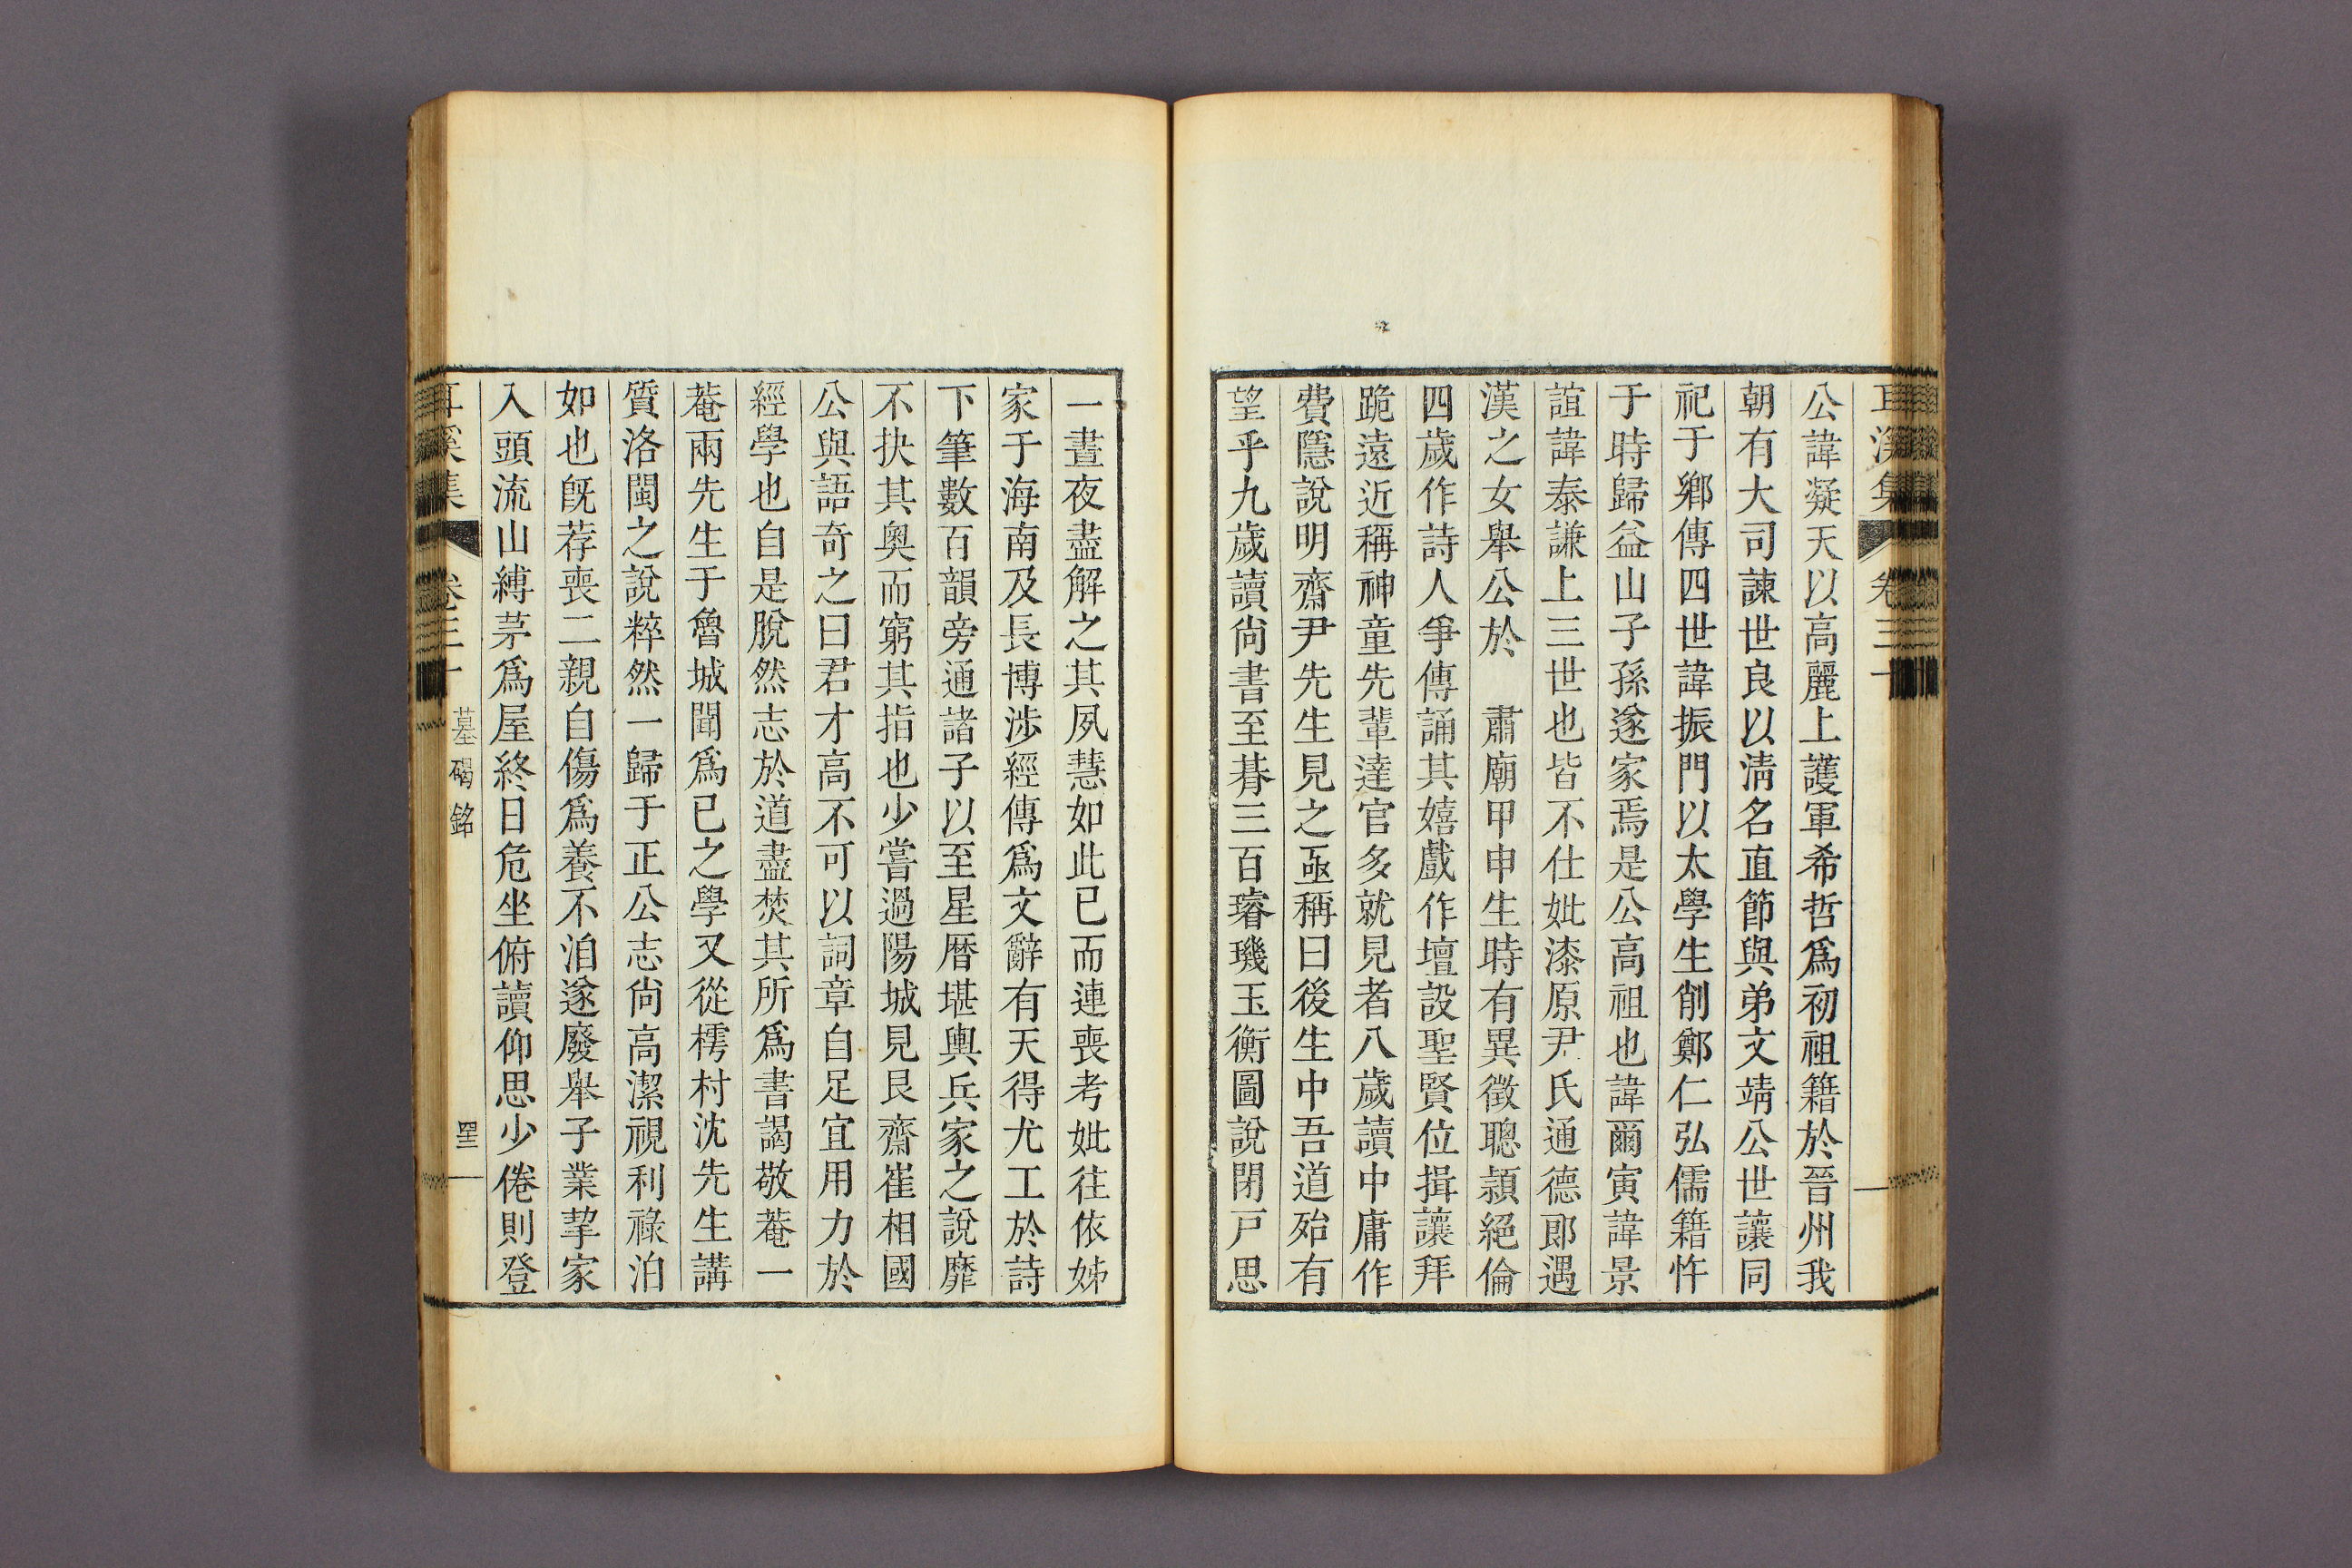 耳溪集 卷三十
公諱凝天以高麗上護軍希哲爲初祖籍於晉州我
朝有大司諫世良以淸名直節與弟文靖公世讓同
祀于鄕傳四世諱振門以太學生削鄭仁弘儒籍忤
于時歸益山子孫遂家焉是公高祖也諱爾寅諱景
誼諱泰謙上三世也皆不仕妣漆原尹氏通德郞遇
漢之女舉公於 肅廟甲申生時有異徵聰潁絕倫
四歲作詩人爭傳誦其嬉戲作壇設聖賢位揖讓拜
跪遠近稱神童先輩達官多就見者八歲讀中庸作
費隱說明齋尹先生見之亟稱曰後生中吾道殆有
望乎九歲讀尙書至朞三百璿璣玉衡圖說閉戶思
一晝夜盡解之其夙慧如此已而連喪考妣往依姊
家于海南及長博涉經傳爲文辭有天得尤工於詩
下筆數百韻旁通諸子以至星曆堪輿兵家之說靡
不抉其奧而窮其指也少嘗過陽城見艮齋崔相國
公與語奇之曰君才高不可以詞章自足宜用力於
經學也自是脫然志於道盡焚其所爲書謁敬菴一
菴兩先生于魯城聞爲已之學又從樗村沈先生講
質洛閩之說粹然一歸于正公志尙高潔視利祿泊
如也旣荐喪二親自傷爲養不洎遂廢舉子業挈家
入頭流山縛茅爲屋終日危坐俯讀仰思少倦則登
耳溪集 卷三十 墓碣銘 四三